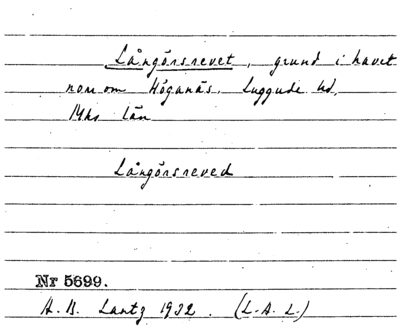 Långörsrevet, grund i havet
norr om Höganäs. Luggude hd,
Mhs län
Långörsreved
Nr 5699.
A. B. Lantz 1932. (L.A.L.)